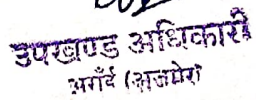 उपखण्ड अधिकारी
अराँई (अजमेर)